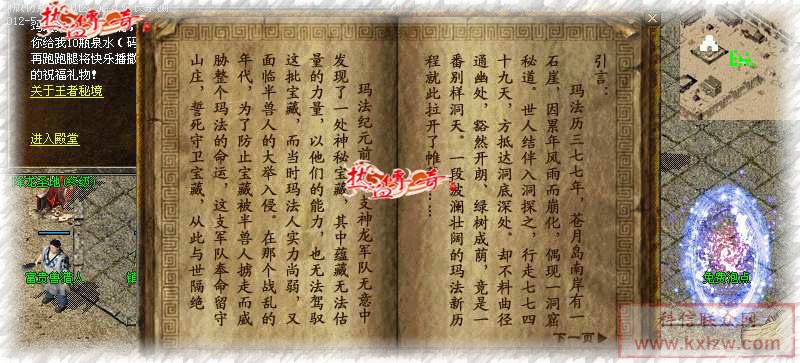 012-5
你给我10瓶泉水（码
再跑跑腿将快乐播撒
的祝福礼物！
关于王者秘境
进入殿堂
引言：
玛法历三七七年，苍月岛南岸有一
石崖，因累年风雨而崩化，偶现一洞窟
秘道。世人结伴入洞探之，行走七七四
十九天，方抵达洞底深处。却不料曲径
通幽处，豁然开朗，绿树成荫，竟是一
番别样洞天。一段波澜壮阔的玛法新历
程就此拉开了帷
玛法纪元前
支神龙军队无意中
发现了一处神秘宝藏，其中蕴藏无法估
量的力量，以他们的能力，也无法驾驭
这批宝藏，而当时玛法人实力尚弱，又
面临半兽人的大举入侵。在那个战乱的
年代，为了防止宝藏被半兽人掳走而威
胁整个玛法的命运，这支军队奉命留守
山庄，誓死守卫宝藏，从此与世隔绝
下一页
龙圣地(终级)
富贵兽猎人
免费泡点
科信联众网
www.kxlzw.com